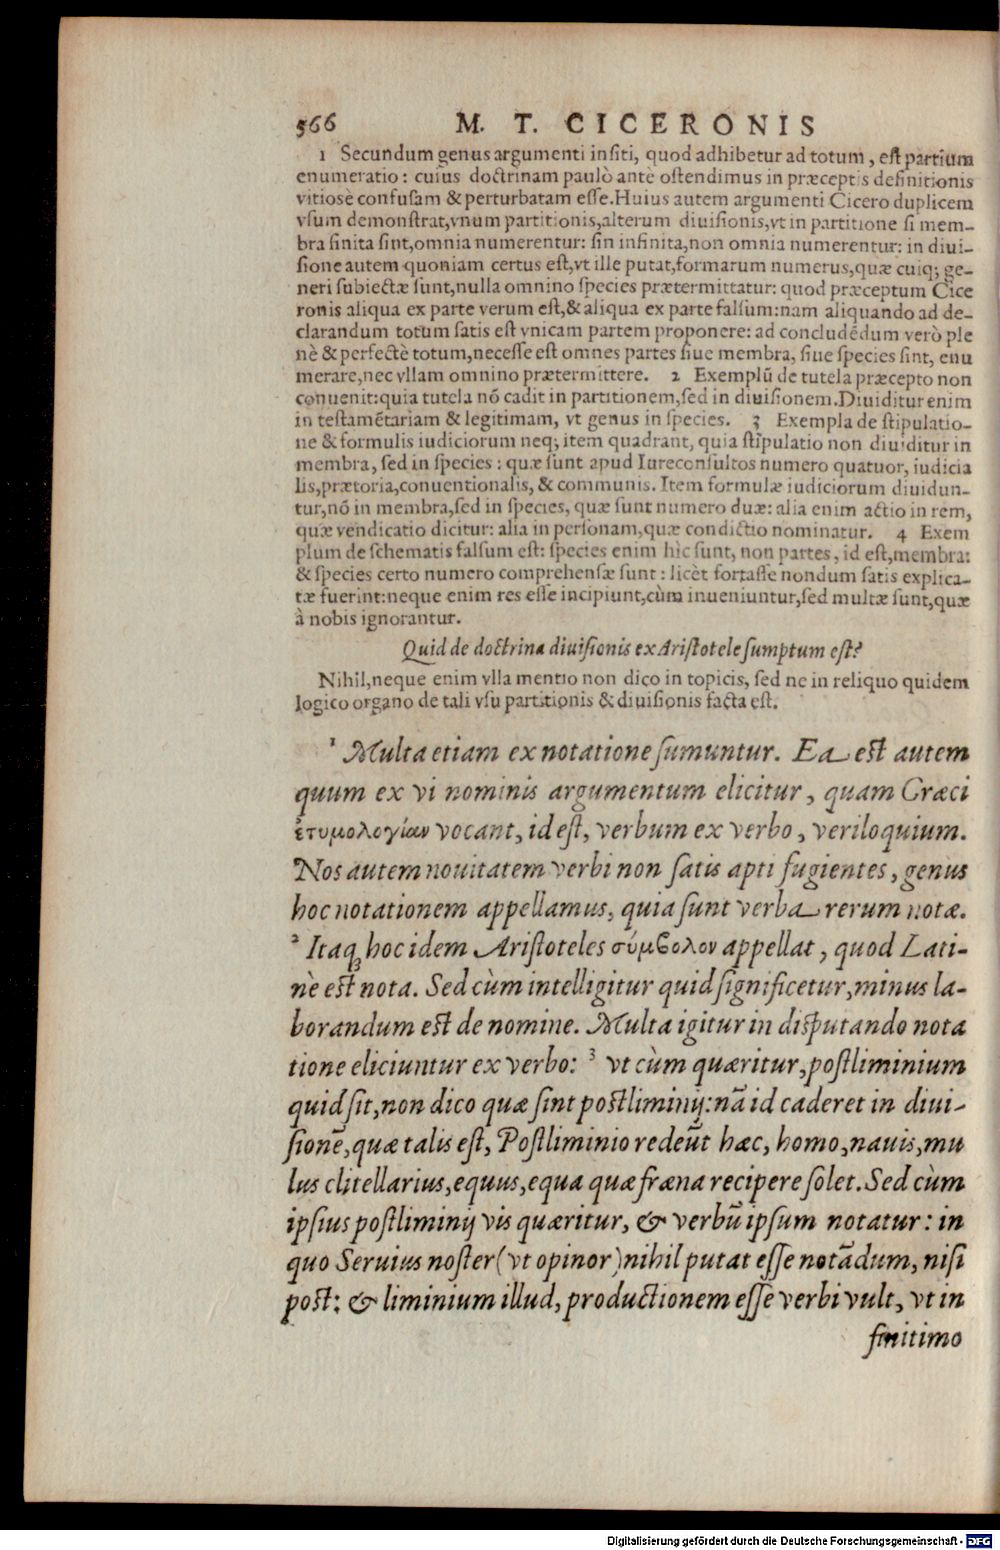 566 M. T. CICERONIS
1 Secundum genus argumenti insiti, quod adhibetur ad totum, est partium
enumeratio: cuius doctrinam paulò antè ostendimus in præceptis definitionis
vitiosè confusam & perturbatam esse. Huius autem argumenti Cicero duplicem
vsum demonstrat, vnum partitionis, alterum diuisionis, vt in partitione si mem-
bra finita sint, omnia numerentur: sin infinita, non omnia numerentur: in diui-
sione autem quoniam certus est, vt ille putat, formarum numerus, quæ cuiq; ge-
neri subiectæ sunt, nulla omnino species prætermittatur: quod præceptum Cice
ronis aliqua ex parte verum est, & aliqua ex parte falsum: nam aliquando ad de-
clarandum totum satis est vnicam partem proponere: ad concludēdum verò ple
nè & perfectè totum, necesse est omnes partes siue membra, siue species sint, enu
merare, nec vllam omnino prætermittere. 2 Exemplū de tutela præcepto non
conuenit: quia tutela nō cadit in partitionem, sed in diuisionem. Diuiditur enim
in testamētariam & legitimam, vt genus in species. 3 Exempla de stipulatio-
ne & formulis iudiciorum neq; item quadrant, quia stipulatio non diuiditur in
membra, sed in species: quæ sunt apud Iureconsultos numero quatuor, iudicia
lis, prætoria, conuentionalis, & communis. Item formulæ iudiciorum diuidun-
tur, nō in membra, sed in species, quæ sunt numero duæ: alia enim actio in rem,
quæ vendicatio dicitur: alia in personam, quæ condictio nominatur. 4 Exem
plum de schematis falsum est: species enim hîc sunt, non partes, id est, membra:
& species certo numero comprehensæ sunt: licèt fortasse nondum satis explica-
tæ fuerint: neque enim res esse incipiunt, cùm inueniuntur, sed multæ sunt, quæ
à nobis ignorantur.
Quid de doctrina diuisionis ex Aristotele sumptum est?
Nihil, neque enim vlla mentio non dico in topicis, sed ne in reliquo quidem
logico organo de tali vsu partitionis & diuisionis facta est.
1 Multa etiam ex notatione sumuntur. Ea est autem
quum ex vi nominis argumentum elicitur, quam Græci
ἐτυμολογίαν vocant, id est, verbum ex verbo, veriloquium.
Nos autem nouitatem verbi non satis apti fugientes, genus
hoc notationem appellamus, quia sunt verba rerum notæ.
2 Itaq; hoc idem Aristoteles σύμβολον appellat, quod Lati-
nè est nota. Sed cùm intelligitur quid significetur, minus la-
borandum est de nomine. Multa igitur in disputando nota
tione eliciuntur ex verbo: 3 vt cùm quæritur, postliminium
quid sit, non dico quæ sint postliminij: nā id caderet in diui-
sionē, quæ talis est, Postliminio redeūt hæc, homo, nauis, mu
lus clitellarius, equus, equa quæ fræna recipere solet. Sed cùm
ipsius postliminij vis quæritur, & verbū ipsum notatur: in
quo Seruius noster (vt opinor) nihil putat esse notādum, nisi
post: & liminium illud, productionem esse verbi vult, vt in
finitimo
Digitalisierung gefördert durch die Deutsche Forschungsgemeinschaft - DFG